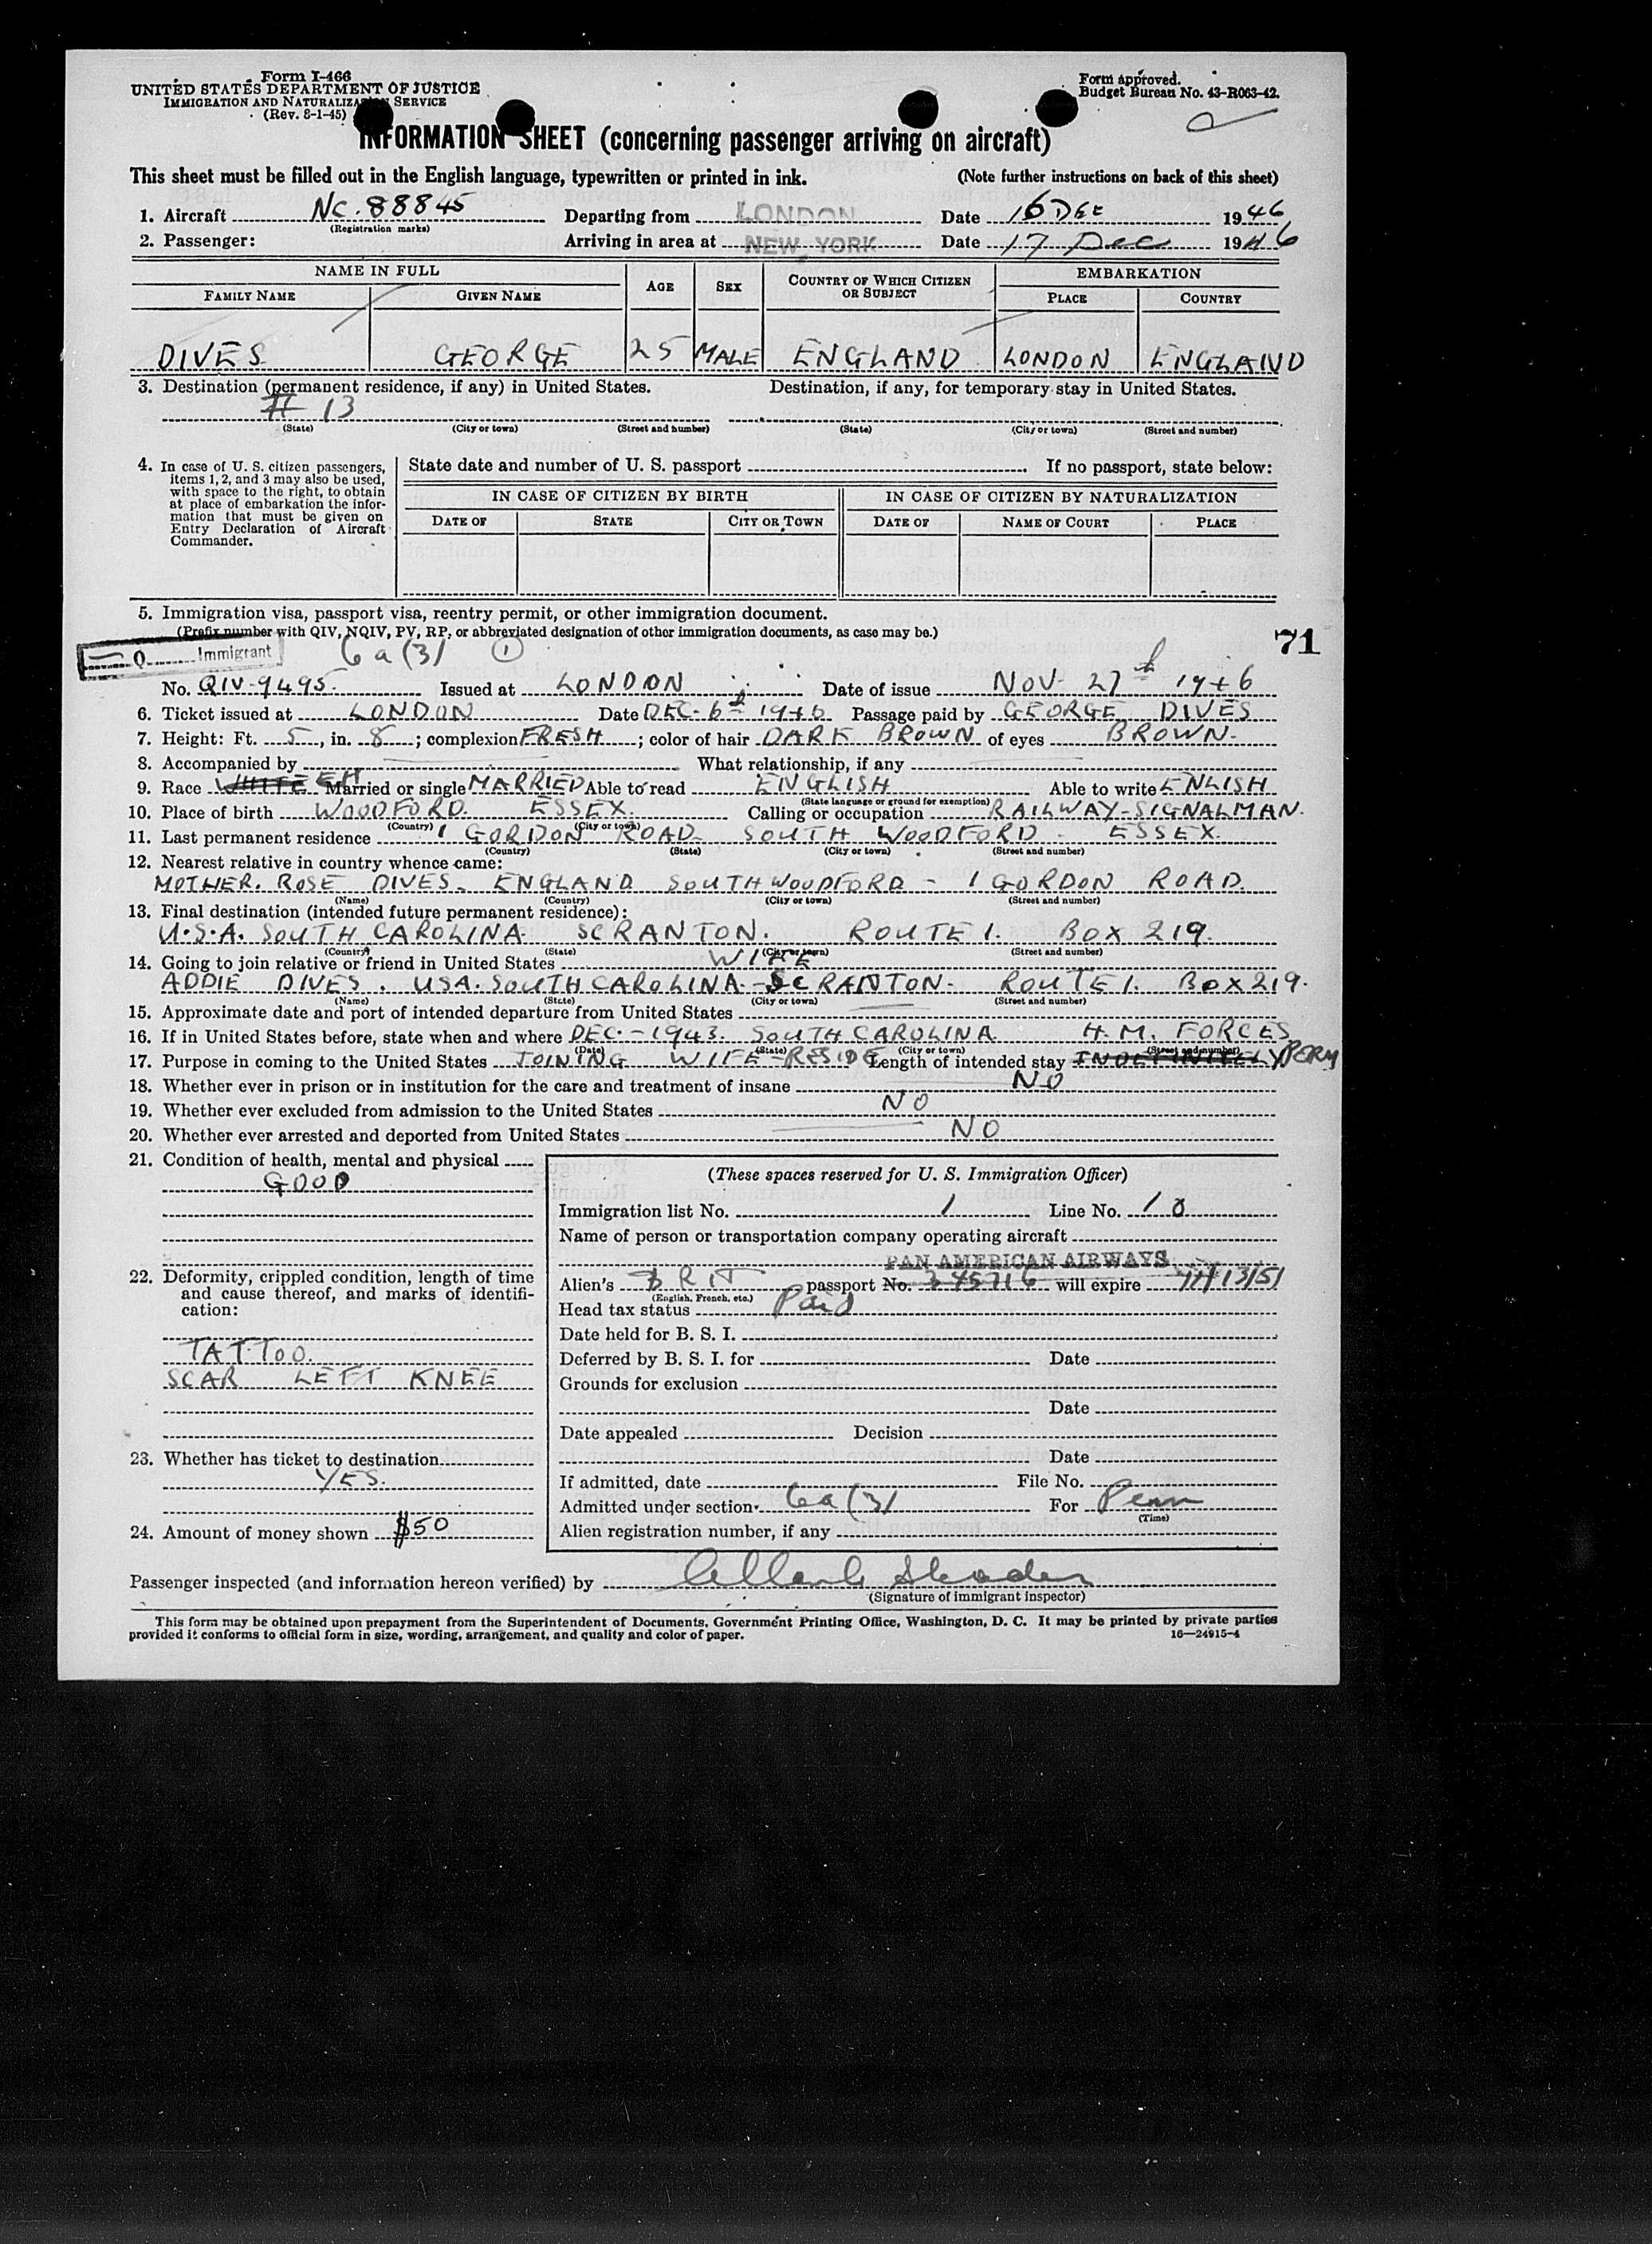 Form I-466
UNITED STATES DEPARTMENT OF JUSTICE
IMMIGRATION AND NATURALIZATION SERVICE
(Rev. 8-1-45)
Form approved.
Budget Bureau No. 43-R063-42.
INFORMATION SHEET (concerning passenger arriving on aircraft)
This sheet must be filled out in the English language, typewritten or printed in ink. (Note further instructions on back of this sheet)
1. Aircraft NC. 88845 Departing from LONDON Date 16 DEC 1946
(Registration marks)
2. Passenger: Arriving in area at NEW YORK Date 17 Dec 1946
NAME IN FULL AGE SEX COUNTRY OF WHICH CITIZEN OR SUBJECT EMBARKATION
FAMILY NAME GIVEN NAME PLACE COUNTRY
DIVES GEORGE 25 MALE ENGLAND LONDON ENGLAND
3. Destination (permanent residence, if any) in United States. Destination, if any, for temporary stay in United States.
# 13
(State) (City or town) (Street and number) (State) (City or town) (Street and number)
4. In case of U. S. citizen passengers, items 1, 2, and 3 may also be used, with space to the right, to obtain at place of embarkation the information that must be given on Entry Declaration of Aircraft Commander.
State date and number of U. S. passport If no passport, state below:
IN CASE OF CITIZEN BY BIRTH IN CASE OF CITIZEN BY NATURALIZATION
DATE OF STATE CITY OR TOWN DATE OF NAME OF COURT PLACE
5. Immigration visa, passport visa, reentry permit, or other immigration document.
(Prefix number with QIV, NQIV, PV, RP, or abbreviated designation of other immigration documents, as case may be.)
71
Q Immigrant 6a(3) 1
No. QIV-9495. Issued at LONDON Date of issue NOV. 27th 1946
6. Ticket issued at LONDON Date DEC. 6th 1946 Passage paid by GEORGE DIVES
7. Height: Ft. 5, in. 8; complexion FRESH; color of hair DARK BROWN of eyes BROWN.
8. Accompanied by What relationship, if any
9. Race WHITE EH Married or single MARRIED Able to read ENGLISH Able to write ENLISH
(State language or ground for exemption)
10. Place of birth WOODFORD. ESSEX. Calling or occupation RAILWAY-SIGNALMAN.
(Country) (City or town)
11. Last permanent residence 1 GORDON ROAD- SOUTH WOODFORD - ESSEX.
(Country) (State) (City or town) (Street and number)
12. Nearest relative in country whence came:
MOTHER. ROSE DIVES. ENGLAND SOUTH WOODFORD - 1 GORDON ROAD.
(Name) (Country) (City or town) (Street and number)
13. Final destination (intended future permanent residence):
U.S.A. SOUTH CAROLINA. SCRANTON. ROUTE 1. BOX 219.
(Country) (State) (City or town) (Street and number)
14. Going to join relative or friend in United States WIFE
ADDIE DIVES. USA. SOUTH CAROLINA - SCRANTON - ROUTE 1. BOX 219.
(Name) (State) (City or town) (Street and number)
15. Approximate date and port of intended departure from United States
16. If in United States before, state when and where DEC. - 1943. SOUTH CAROLINA H.M. FORCES
(Date) (State) (City or town) (Street and number)
17. Purpose in coming to the United States JOINING WIFE - RESIDE Length of intended stay INDEFINITELY PERM
18. Whether ever in prison or in institution for the care and treatment of insane NO
19. Whether ever excluded from admission to the United States NO
20. Whether ever arrested and deported from United States NO
21. Condition of health, mental and physical
GOOD
22. Deformity, crippled condition, length of time and cause thereof, and marks of identification:
TATTOO.
SCAR LEFT KNEE
23. Whether has ticket to destination
YES.
24. Amount of money shown $50
(These spaces reserved for U. S. Immigration Officer)
Immigration list No. 1 Line No. 10
Name of person or transportation company operating aircraft
PAN AMERICAN AIRWAYS
Alien's BRIT passport No. 345716 will expire
(English, French, etc.)
Head tax status Paid
Date held for B. S. I.
Deferred by B. S. I. for Date
Grounds for exclusion
Date
Date appealed Decision
Date
If admitted, date File No.
Admitted under section 6a(3) For Perm
(Time)
Alien registration number, if any
Passenger inspected (and information hereon verified) by
(Signature of immigrant inspector)
This form may be obtained upon prepayment from the Superintendent of Documents, Government Printing Office, Washington, D. C. It may be printed by private parties
provided it conforms to official form in size, wording, arrangement, and quality and color of paper. 16—24915-4